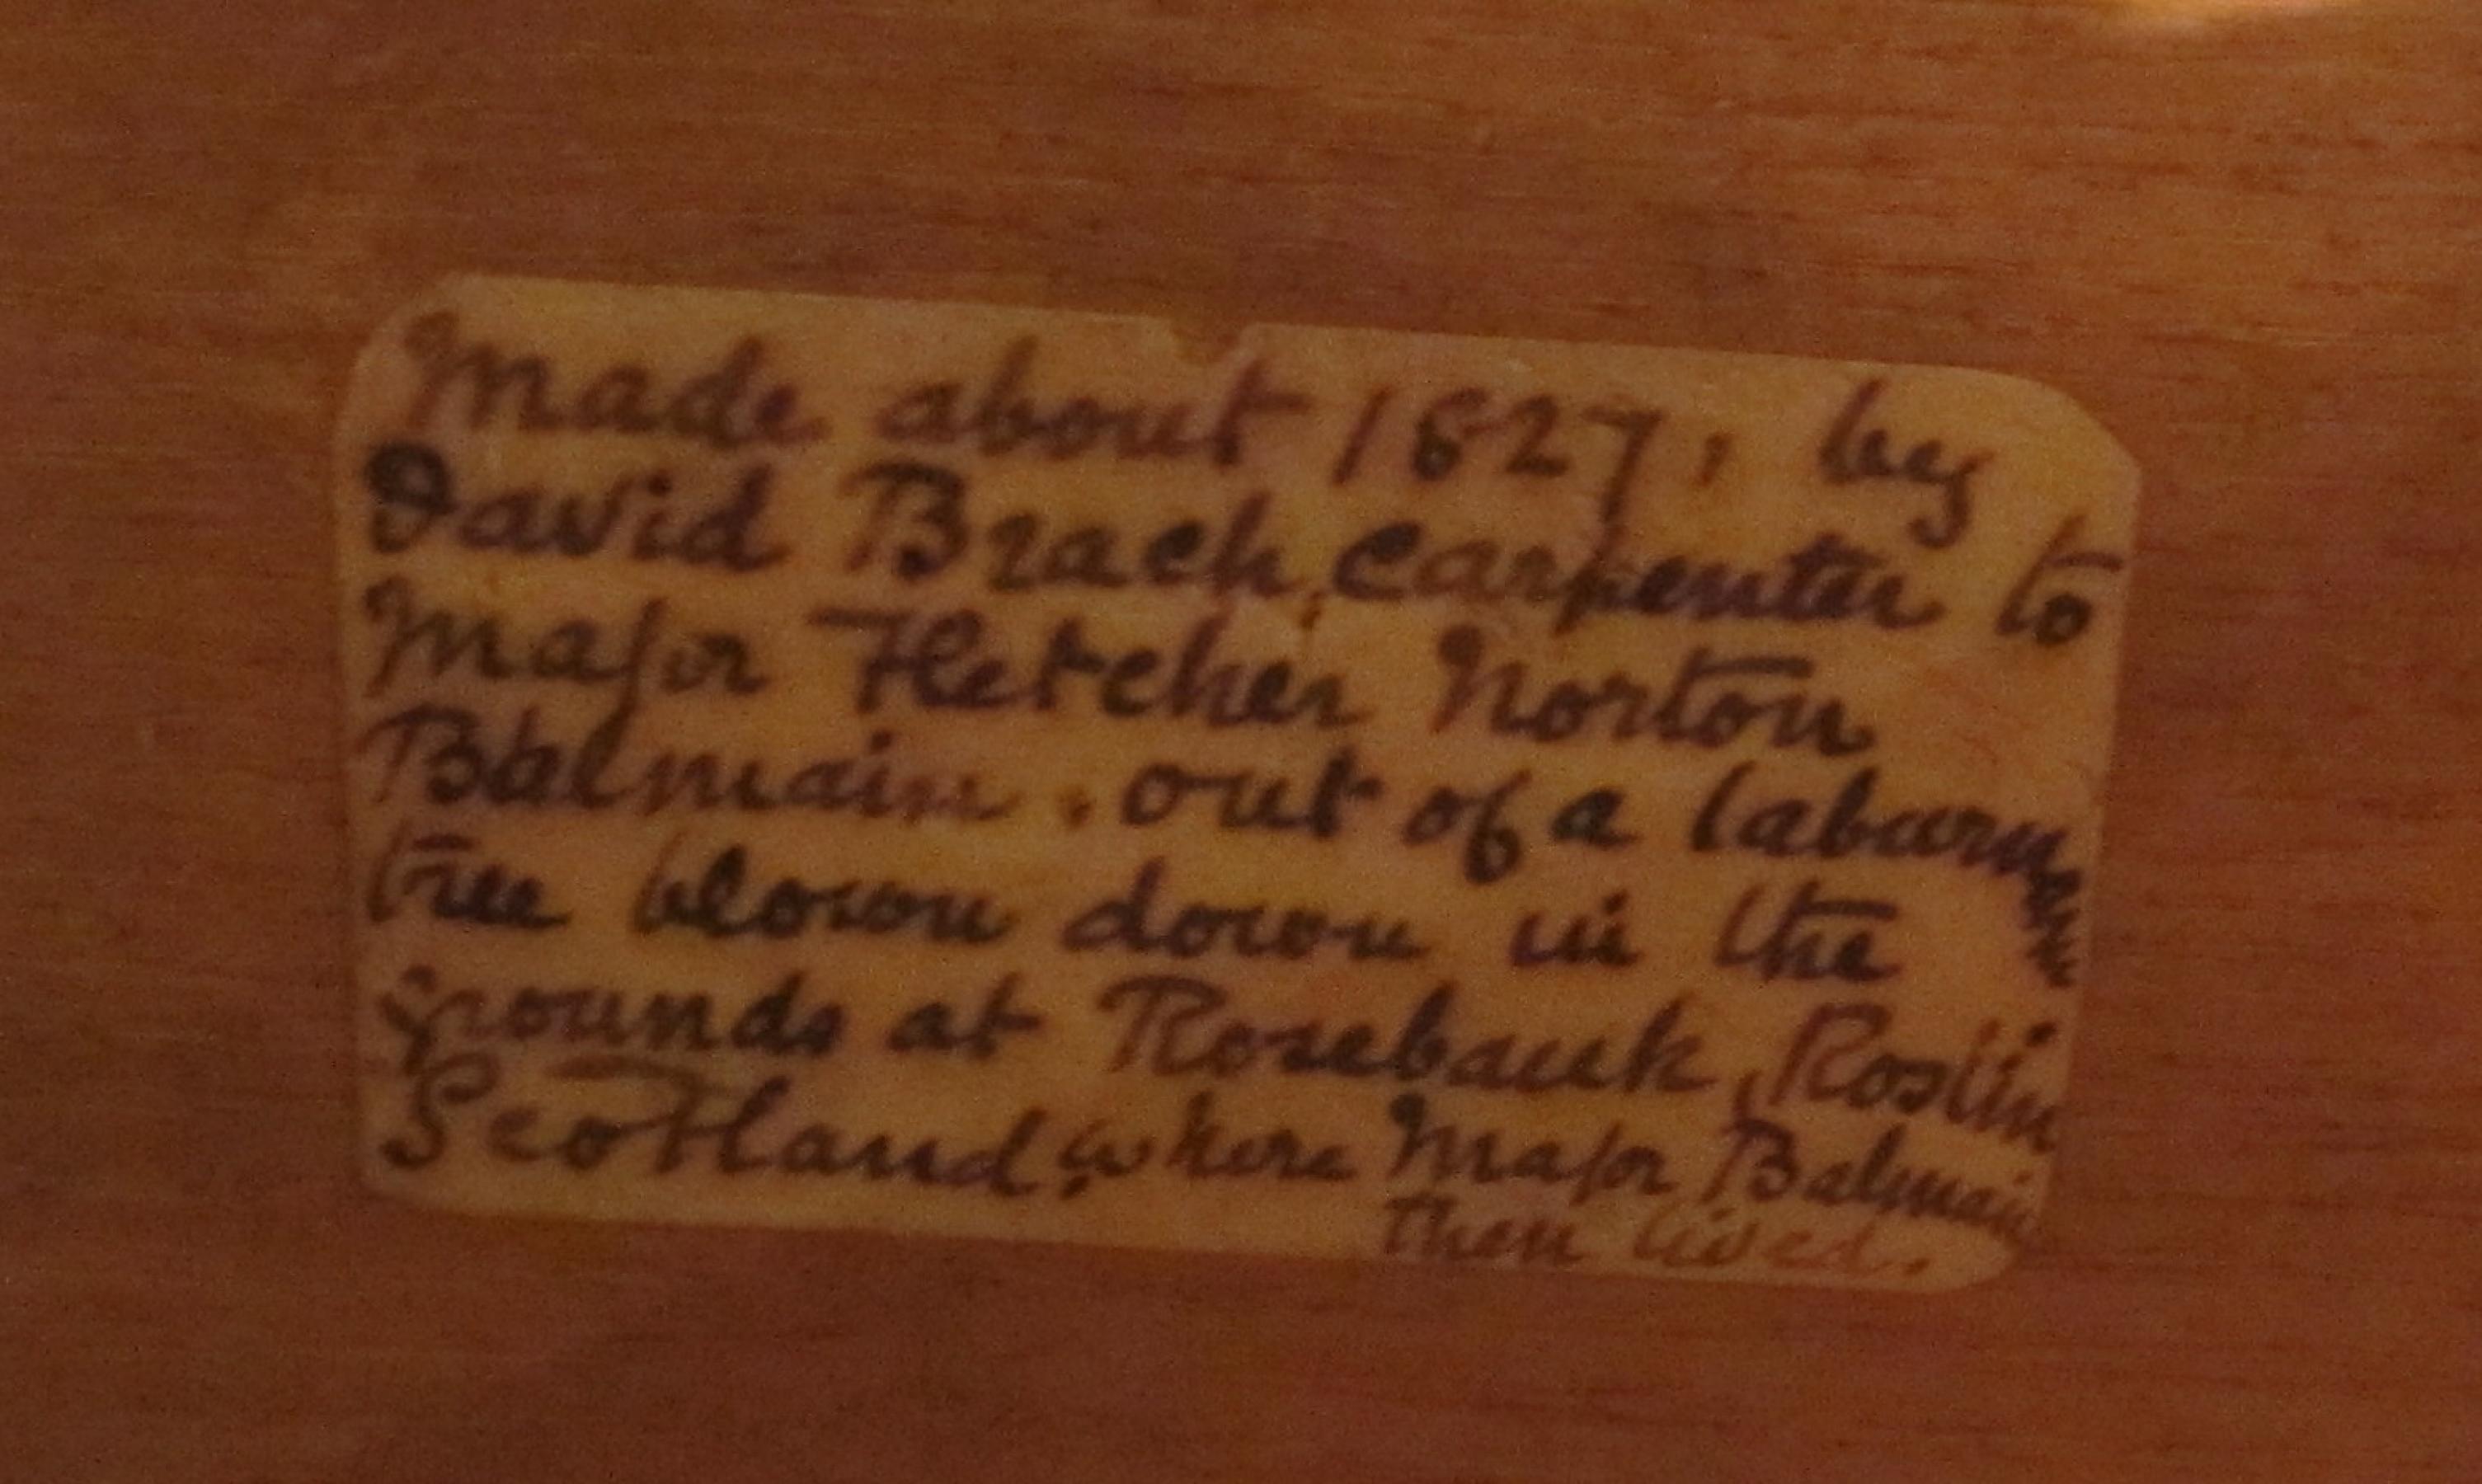 Made about 1827, by
David Brach, Carpenter to
Major Fletcher Norton
Balmain, out of a laburnum
tree blown down in the
grounds at Rosebank, Roslin
Scotland, where Major Balmain
then lived.